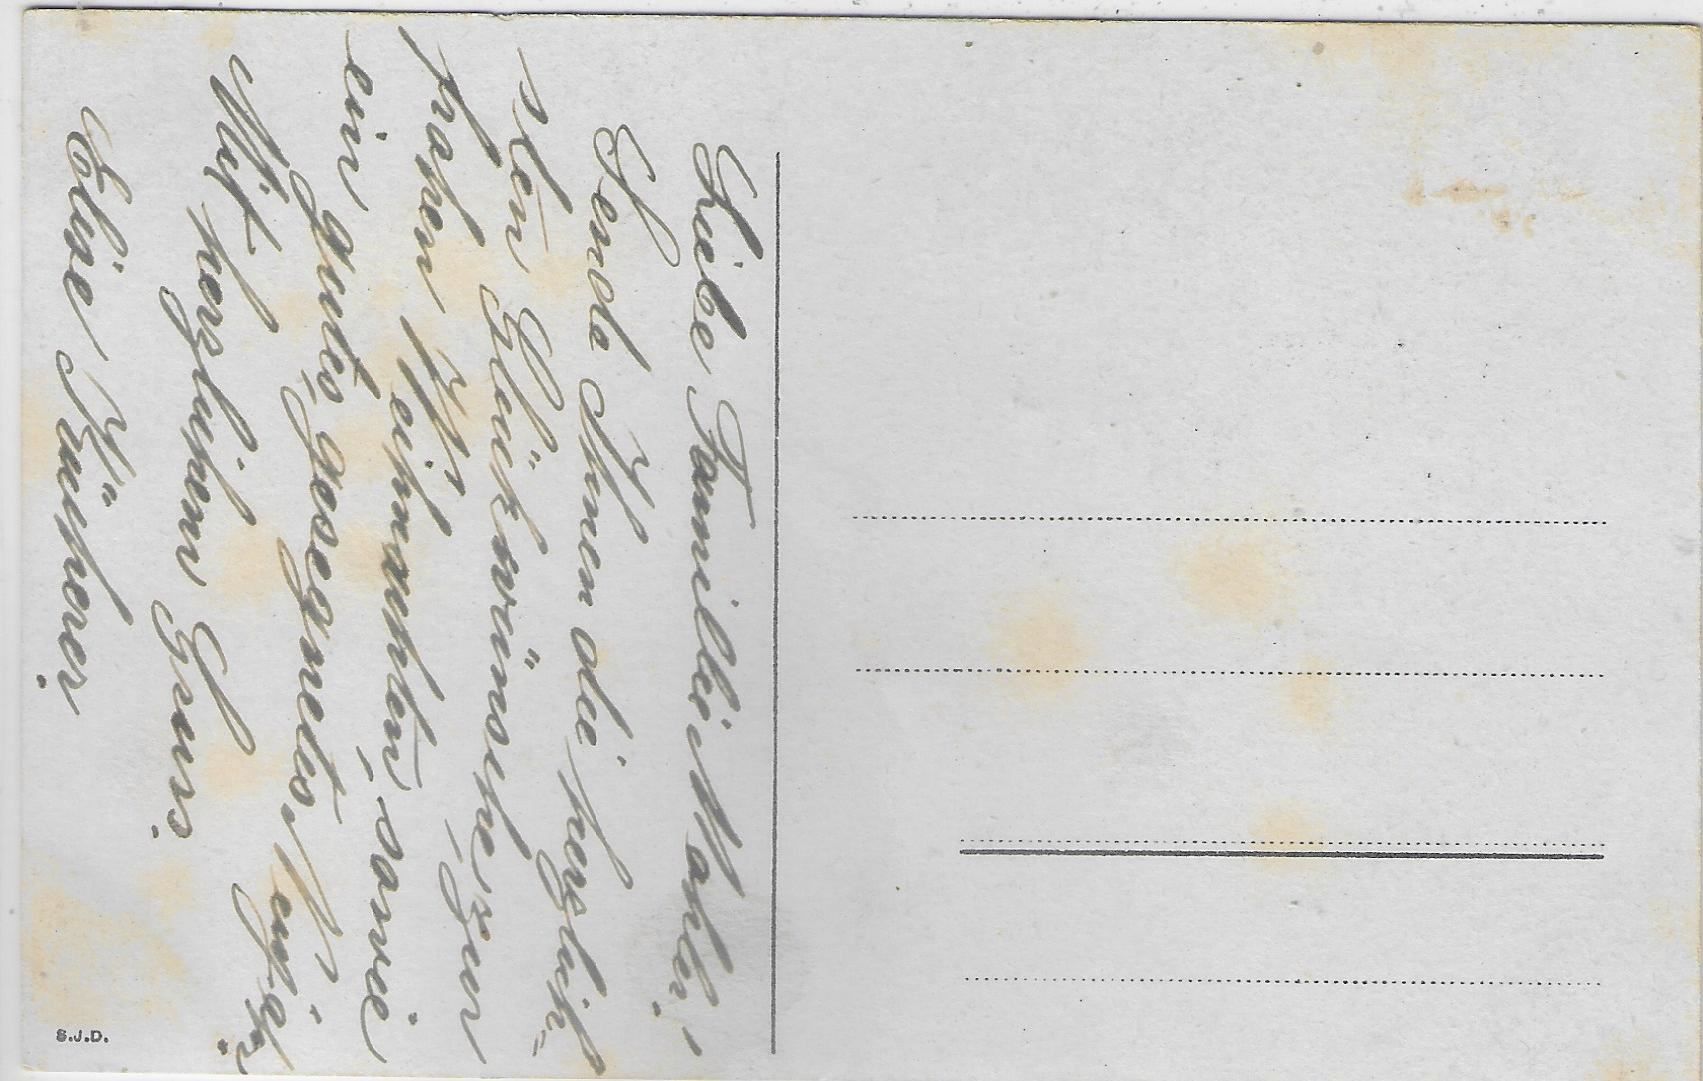 Liebe Familie Mahler!
Sende Ihnen die herzlich-
sten Glückwünsche zur
hohen Weihnachten, sowie
ein gutes, gesegnetes Neujahr.
Mit herzlichem Gruss.
Elise
S.J.D.